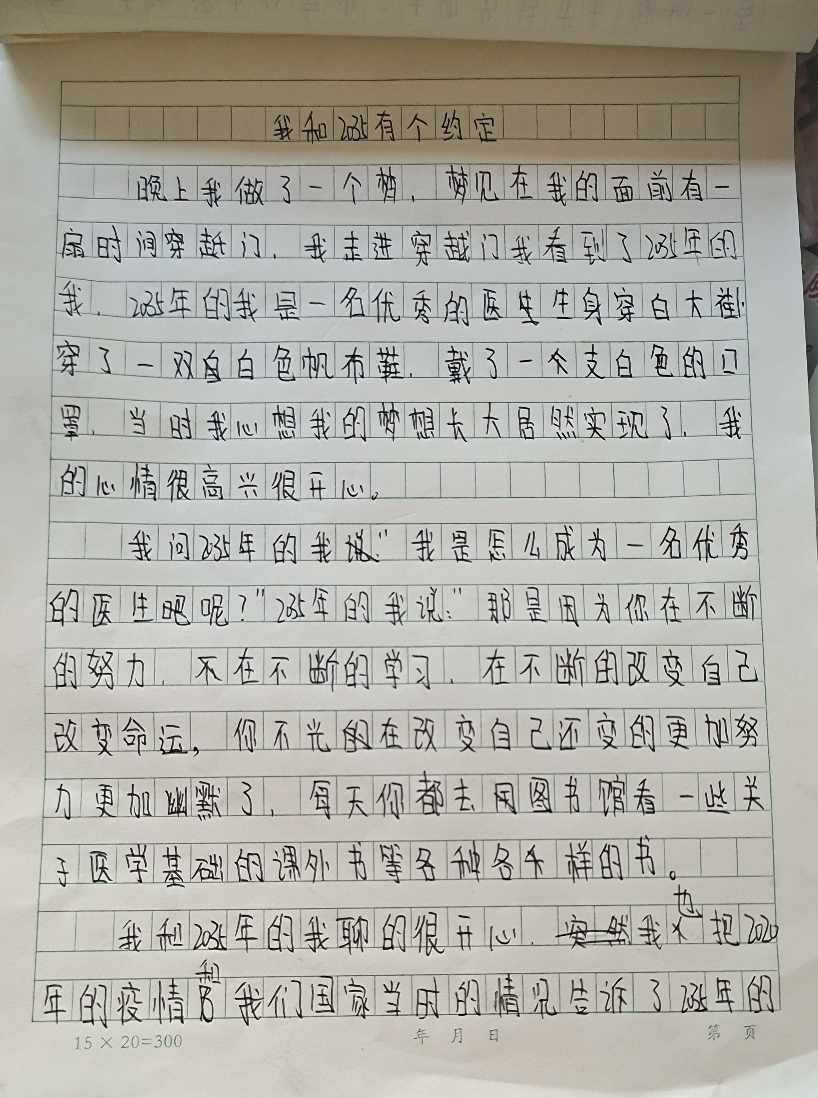 我和2035有个约定
晚上我做了一个梦，梦见在我的面前有一
扇时间穿越门，我走进穿越门我看到了2035年的
我，2035年的我是一名优秀的医生生身穿白大褂
穿了一双白白色帆布鞋，戴了一个支白色的口
罩，当时我心想我的梦想长大居然实现了，我
的心情很高兴很开心。
我问2035年的我说："我是怎么成为一名优秀
的医生吧呢？"2035年的我说："那是因为你在不断
的努力，不在不断的学习，在不断的改变自己
改变命运，你不光的在改变自己还变的更加努
力更加幽默了，每天你都去网图书馆看一些关
于医学基础的课外书等各种各样的书。
我和2035年的我聊的很开心，突然我也把2020
年的疫情和我们国家当时的情况告诉了2035年的
15×20=300 年 月 日 第 页